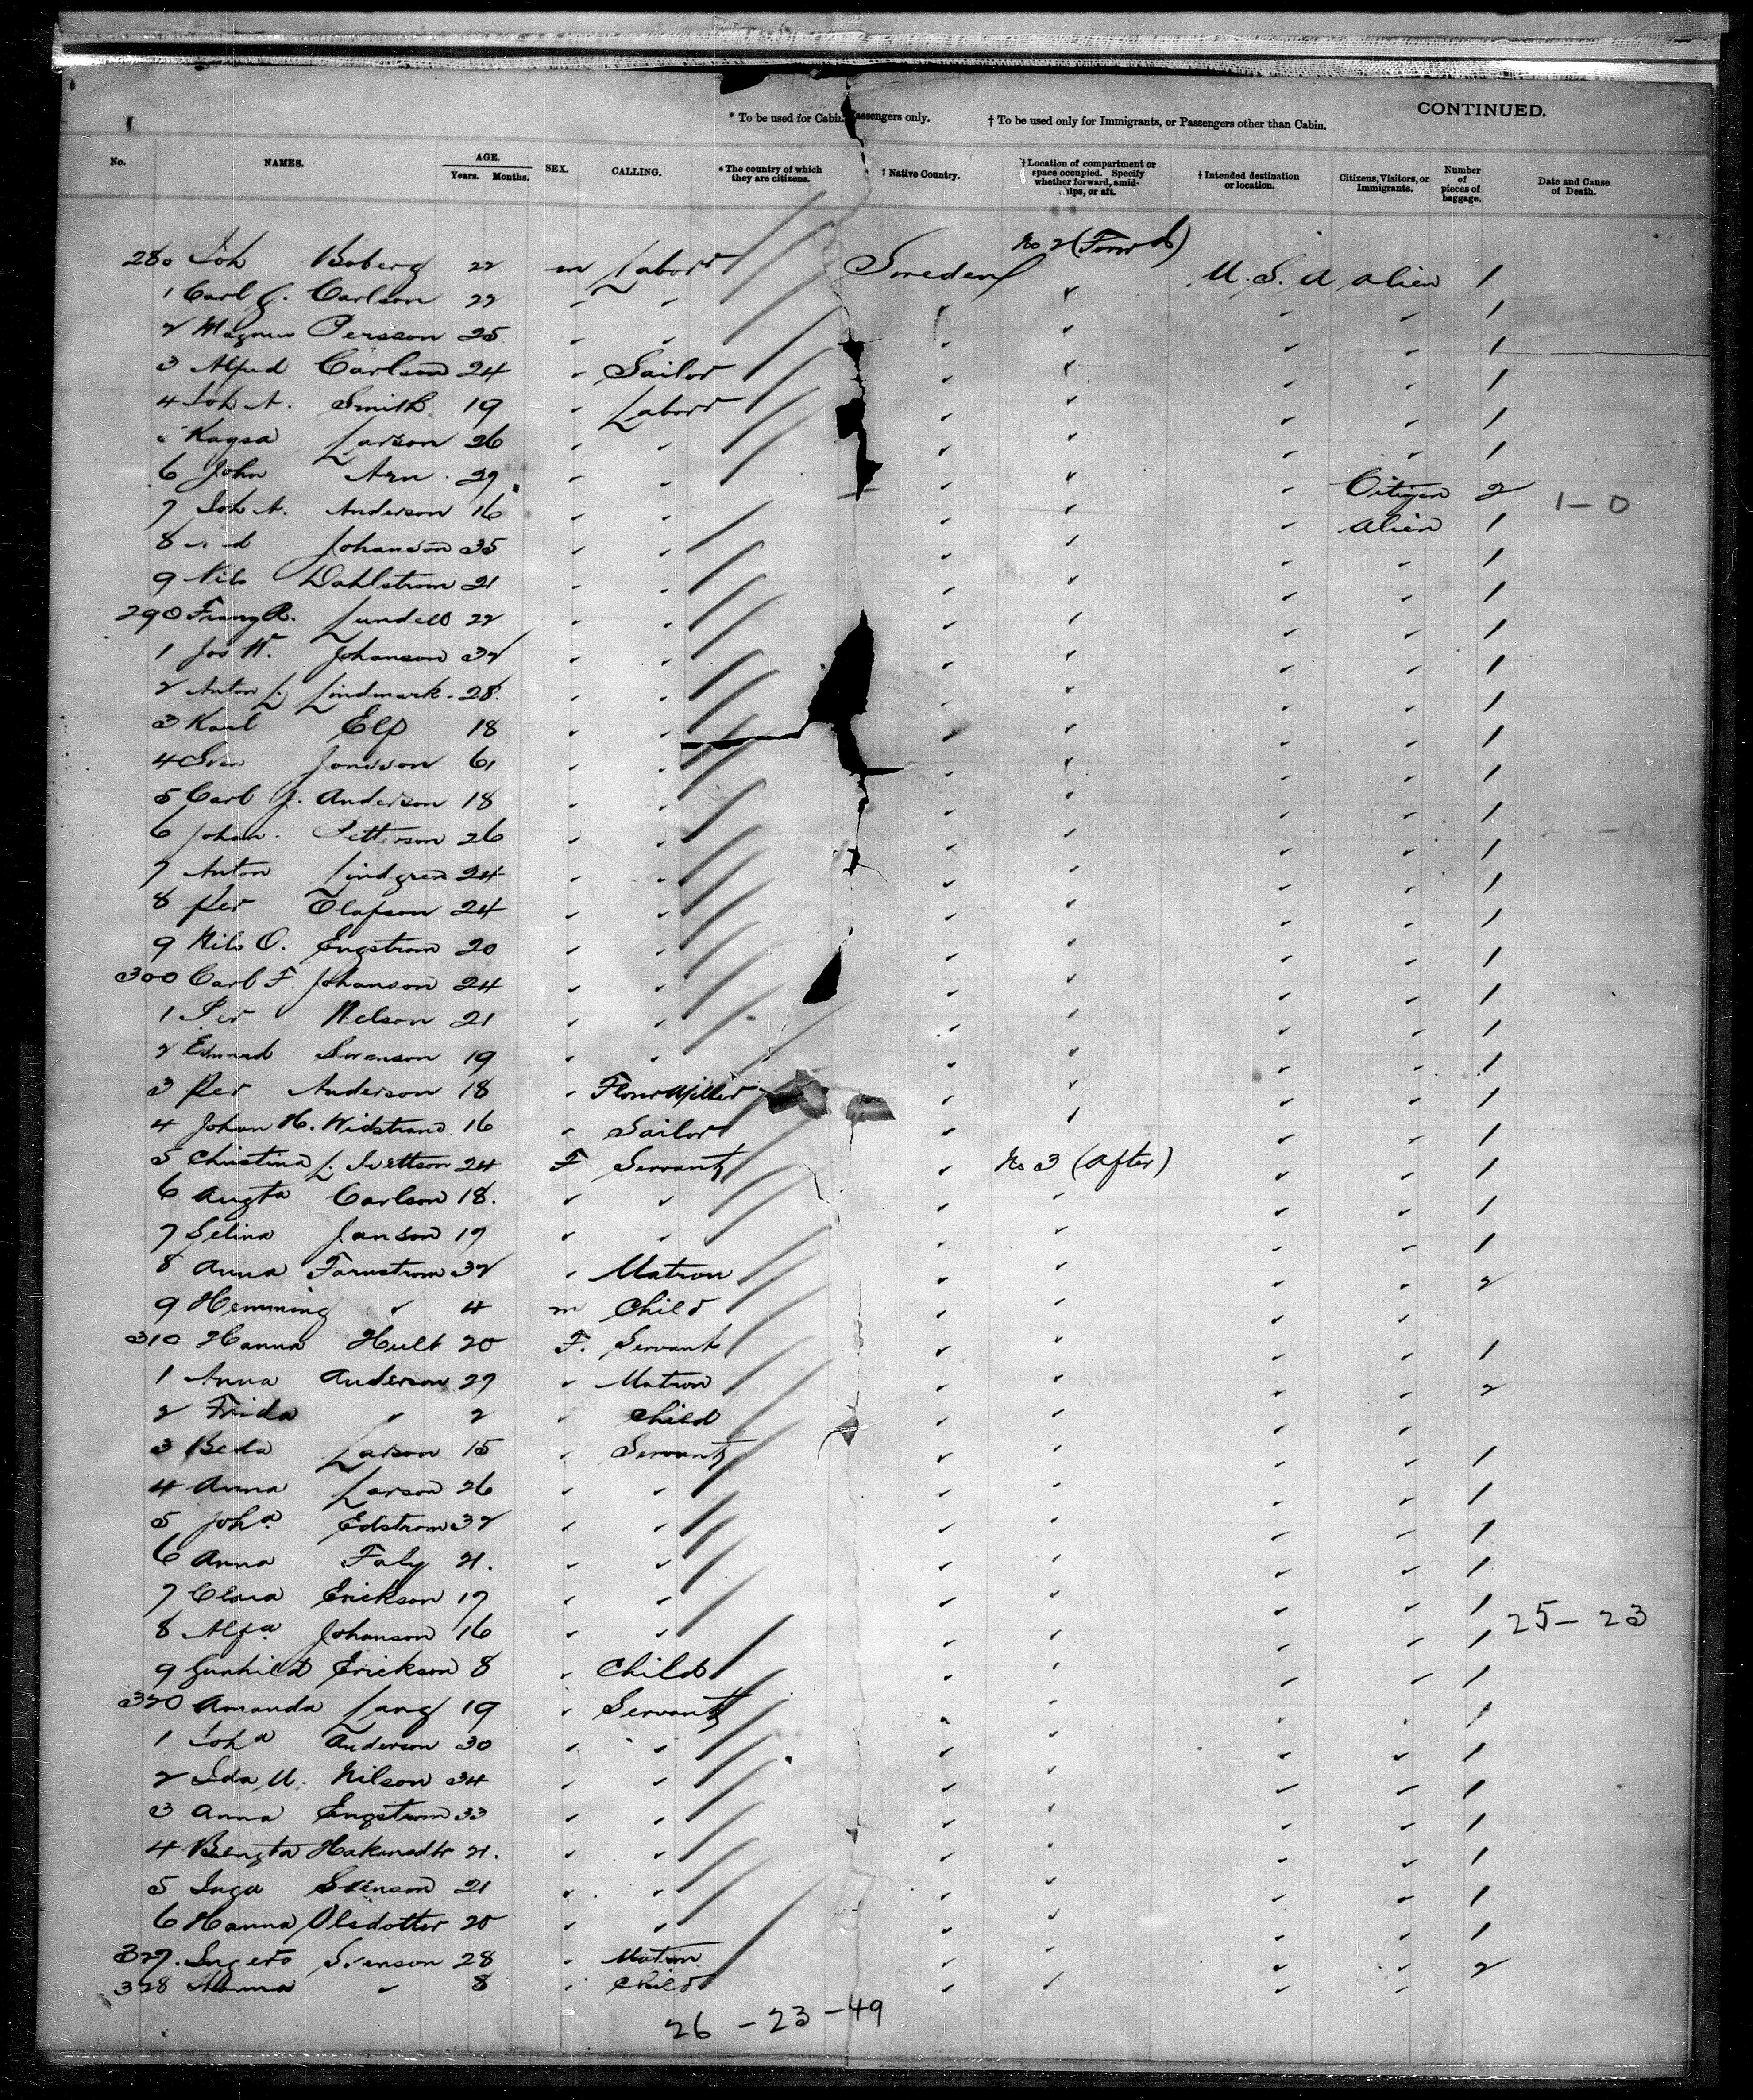 CONTINUED.
* To be used for Cabin Passengers only. † To be used only for Immigrants, or Passengers other than Cabin.
No. NAMES. AGE. Years. Months. SEX. CALLING. *The country of which they are citizens. † Native Country. †Location of compartment or space occupied. Specify whether forward, amidships, or aft. † Intended destination or location. Citizens, Visitors, or Immigrants. Number of pieces of baggage. Date and Cause of Death.
No 2 (Forwd)
280 Joh Boberg 22 m Laborr Sweden U.S.A alien 1
1 Carl J. Carlson 22 " " " " " " 1
2 Magnus Persson 25 " " " " " " 1
3 Alfred Carlson 24 " Sailor " " " " 1
4 Joh A. Smith 19 " Laborr " " " " 1
Kaysa Larson 26 " " " " " " 1
6 John Arn 29 " " " " " Citizen 2 1-0
7 Joh A. Anderson 16 " " " " " alien 1
8 Johanson 35 " " " " " " 1
9 Nils Dahlstrom 21 " " " " " " 1
290 Franz R. Lundell 22 " " " " " " 1
1 Jos W. Johanson 32 " " " " " " 1
2 Anton L. Lindmark 28 " " " " " " 1
3 Karl 18 " " " " " " 1
4 Sven Jonsson 61 " " " " " " 1
5 Carl J. Anderson 18 " " " " " " 1
6 Johan Petterson 26 " " " " " " 1
7 Anton Lindgren 24 " " " " " " 1
8 Per Olafson 24 " " " " " " 1
9 Nils O. Engstrom 20 " " " " " " 1
300 Carl F. Johanson 24 " " " " " " 1
1 Per Nelson 21 " " " " " " 1
2 Edward Swenson 19 " " " " " " 1
3 Per Anderson 18 " Flour Miller " " " " 1
4 Johan H. Widstrand 16 " Sailor " " " " 1
5 Christina L. 24 F Servant " No 3 (after) " " 1
6 Augta Carlson 18. " " " " " " 1
7 Selina Janson 19 " " " " " " 1
8 Anna Farnstrom 32 " Matron " " " " 2
9 Hemming " 4 m Child " " " "
310 Hanna Hult 20 F. Servant " " " " 1
1 Anna Anderson 29 " Matron " " " " 2
2 Frida " 2 " Child " " " "
3 Beda Larson 15 " Servant " " " " 1
4 Anna Larson 26 " " " " " " 1
5 Joha Edstrom 32 " " " " " " 1
6 Anna 21. " " " " " " 1
7 Clara Erickson 19 " " " " " " 1
8 Alfa Johanson 16 " " " " " " 1 25-23
9 Gunhild Erickson 8 " Child " " " " 1
320 Amanda Lang 19 " Servant " " " " 1
1 Joha Anderson 30 " " " " " " 1
2 Ida M. Nilson 34 " " " " " " 1
3 Anna Engstrom 33 " " " " " " 1
4 Bengta Hakansdtr 21. " " " " " " 1
5 Inga Svenson 21 " " " " " " 1
6 Hanna Olsdotter 20 " " " " " " 1
327. Svenson 28 " Matron " " " " 2
328 " 8 " Child " " " "
26-23-49